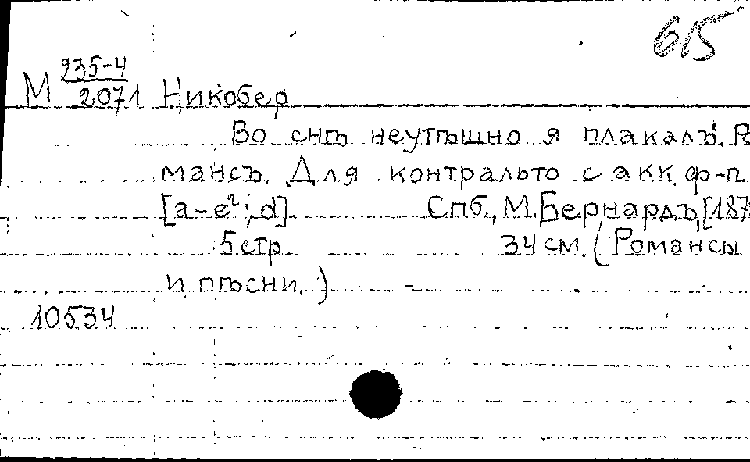 615
М 235-4/2071 Никобер
Во снѣ неутѣшно я плакалъ. Ро
мансъ. Для контральто с акк. ф-п.
[a-e²; d]. Спб., М. Бернардъ, [187
5 стр. 34 см. (Романсы
и пѣсни.)
10534